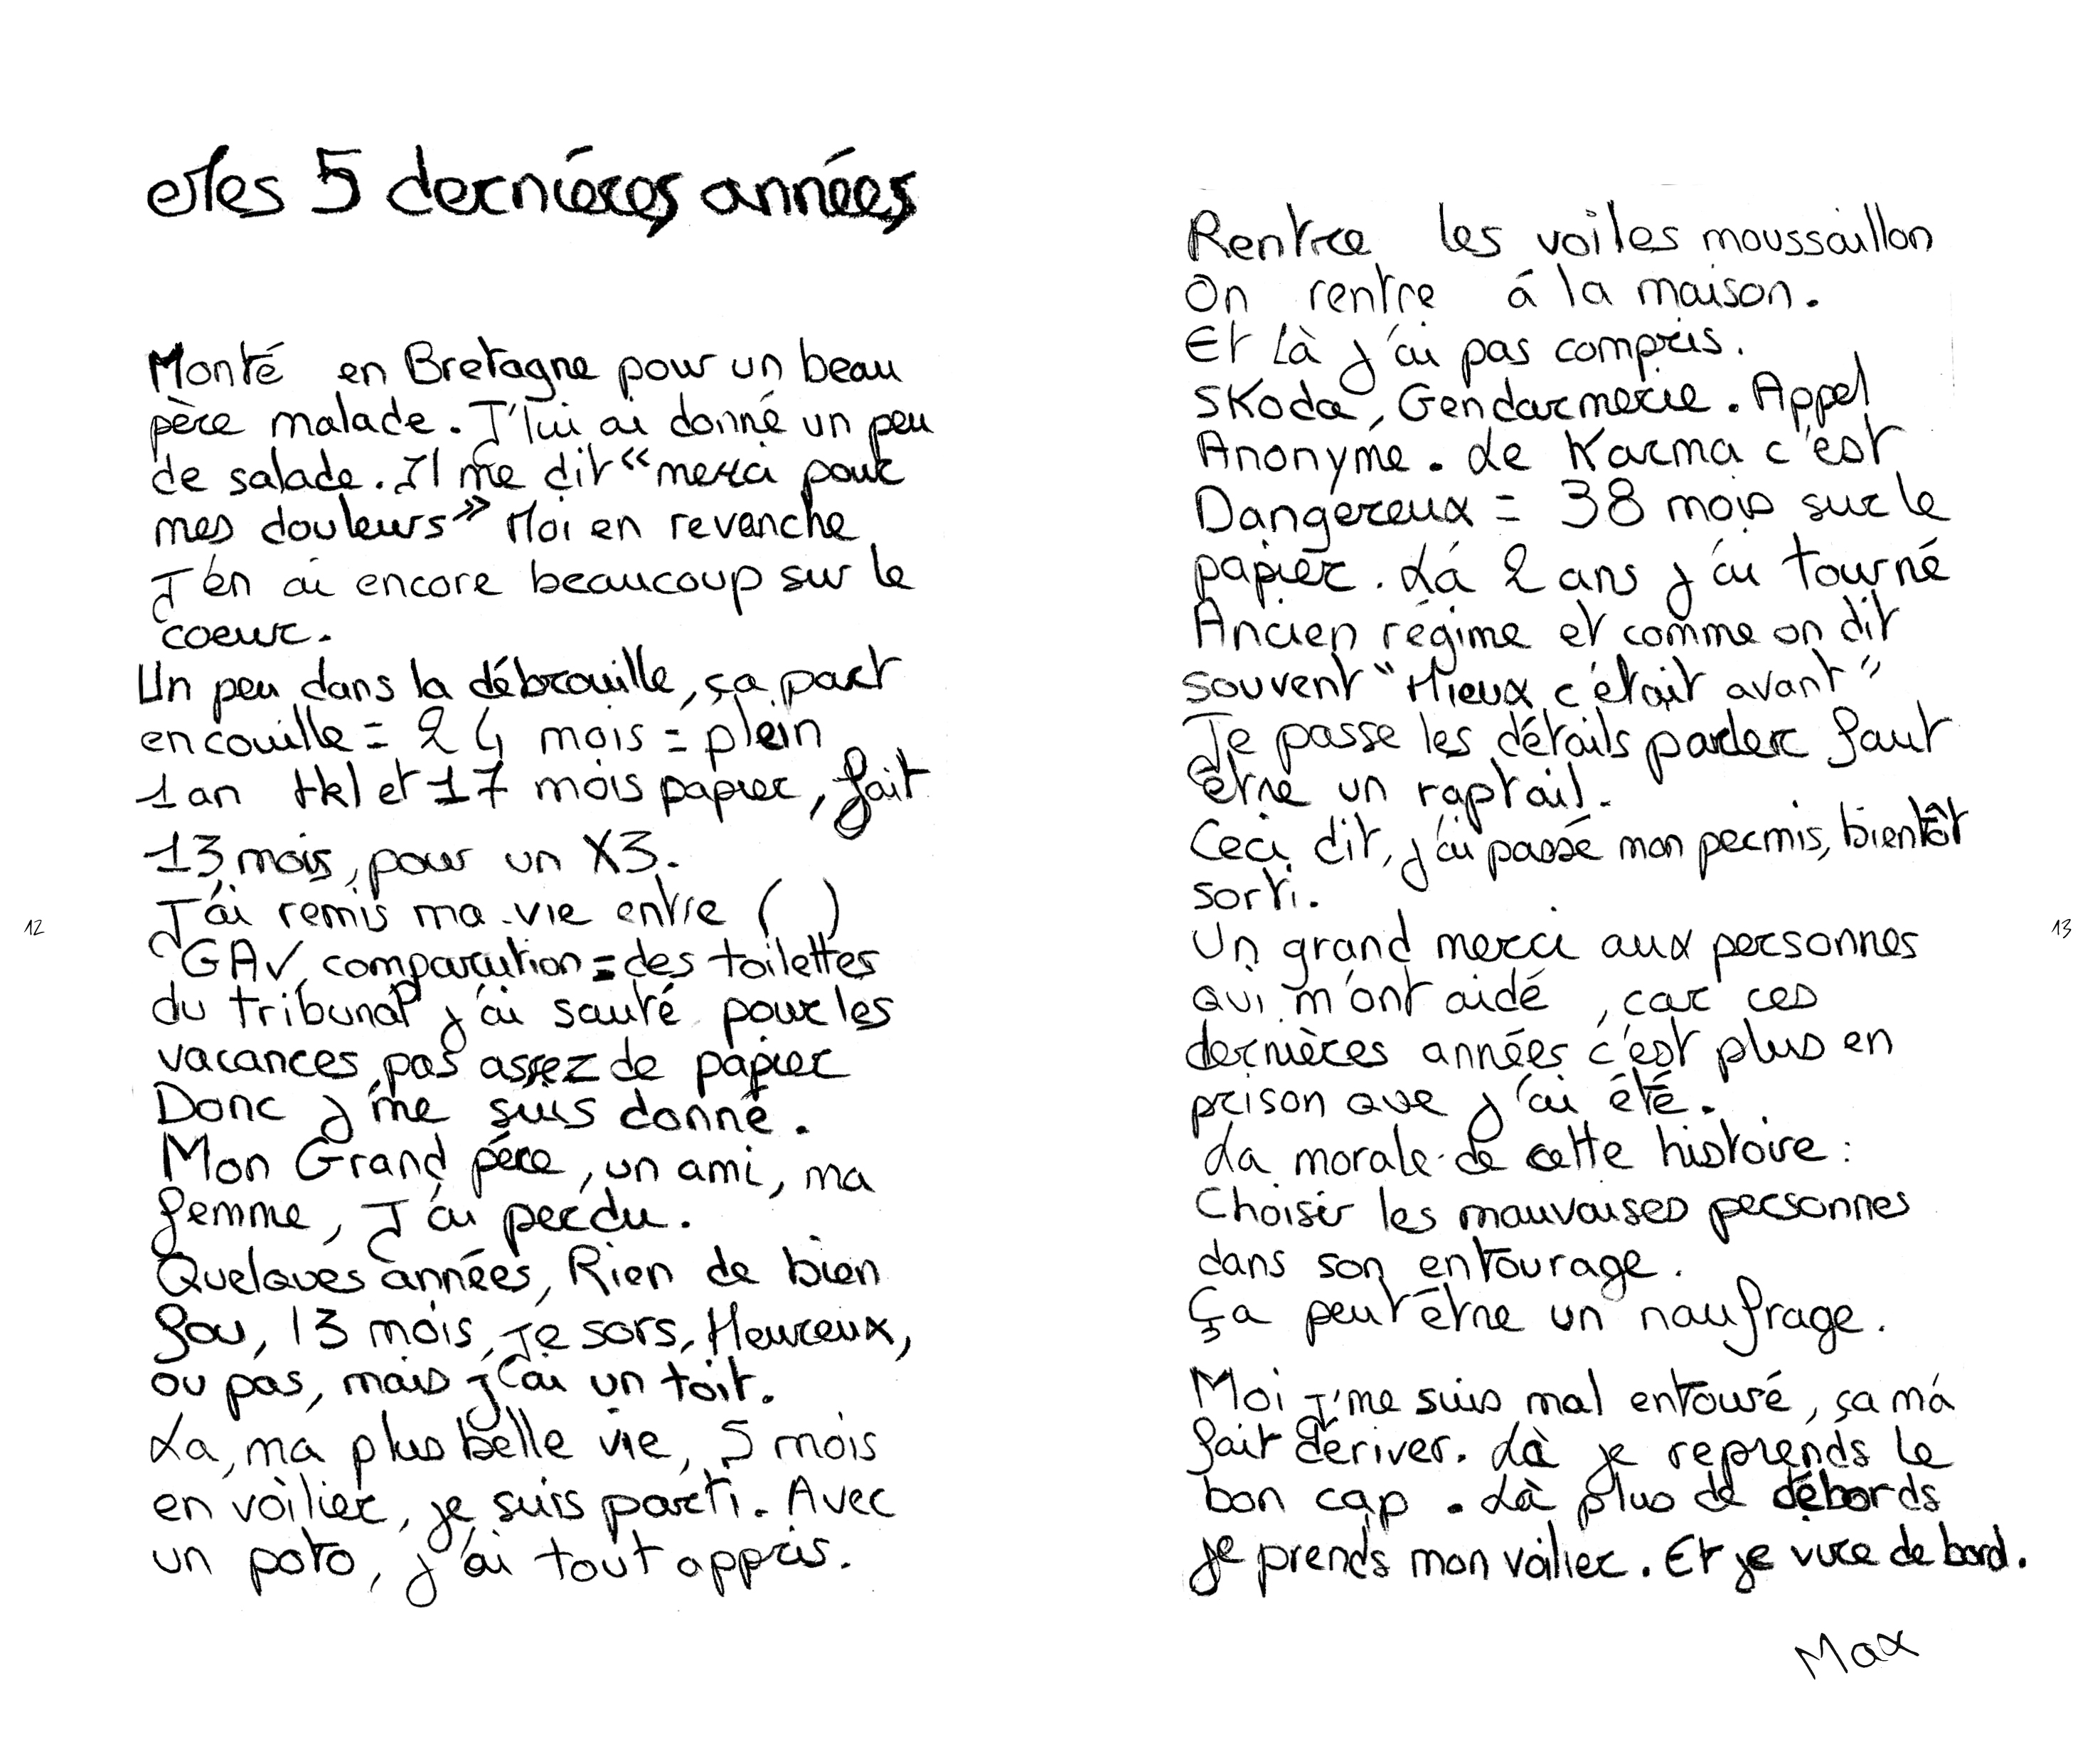 Mes 5 dernières années
Monté en Bretagne pour un beau
père malade. J'lui ai donné un peu
de salade. Il me dit "merci pour
mes douleurs" Moi en revanche
J'en ai encore beaucoup sur le
coeur.
Un peu dans la débrouille, ça part
en couille = 24 mois = plein
1 an tkl et 17 mois papier, fait
13 mois, pour un X3.
J'ai remis ma vie entre ( )
GAV, comparution = des toilettes
du tribunal j'ai sauté pour les
vacances, pas assez de papier
Donc j'me suis donné.
Mon Grand père, un ami, ma
femme, J'ai perdu.
Quelques années, Rien de bien
fou, 13 mois, Je sors, Heureux,
ou pas, mais j'ai un toit.
La, ma plus belle vie, 5 mois
en voilier, je suis parti. Avec
un poto, j'ai tout appris.
12
Rentre les voiles moussaillon
On rentre à la maison.
Et là j'ai pas compris.
SKoda, Gendarmerie. Appel
Anonyme. Le Karma c'est
Dangereux = 38 mois sur le
papier. Là 2 ans j'ai tourné
Ancien régime et comme on dit
souvent "Mieux c'était avant"
Je passe les détails parler faut
être un raptail.
Ceci dit, j'ai passé mon permis, bientôt
sorti.
Un grand merci aux personnes
qui m'ont aidé, car ces
dernières années c'est plus en
prison que j'ai été.
La morale de cette histoire :
Choisir les mauvaises personnes
dans son entourage.
Ça peut être un naufrage.
Moi j'me suis mal entouré, ça m'a
fait dériver. Là je reprends le
bon cap. Là plus de débords
je prends mon voilier. Et je vire de bord.
Max
13